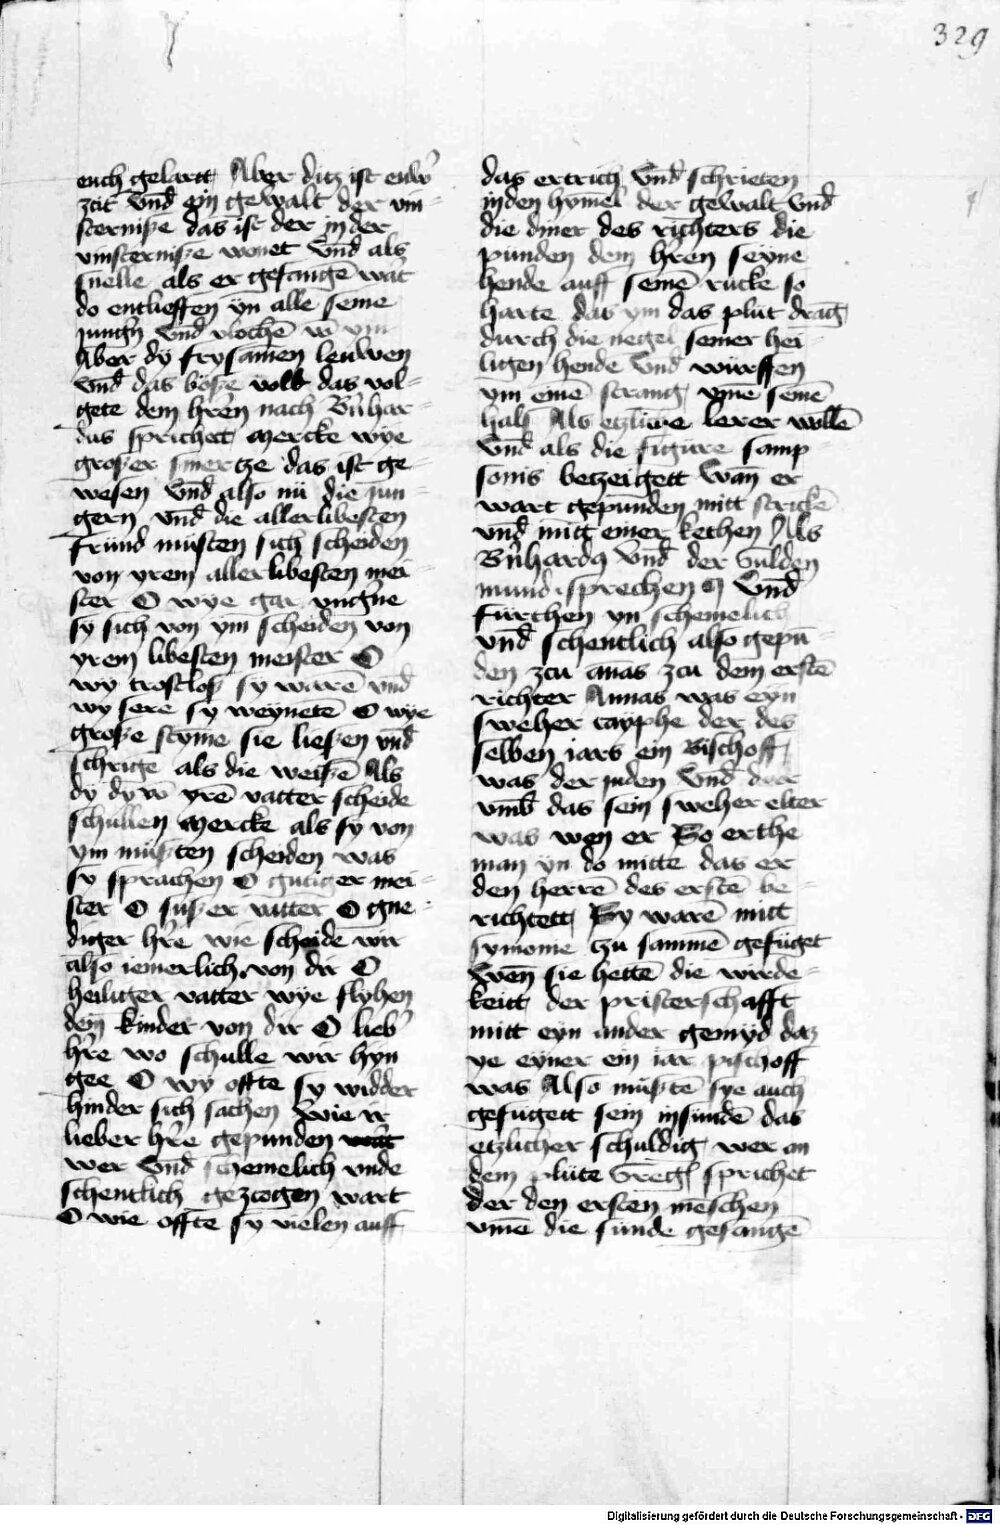 329
euch gelartt Aber ditz ist euw͛
zcit vnd̄ eyn gewalt der vin-
sternisse das ist der in der
vinsternisse wonet vnd̄ als
snelle als er gefange wart
do entlieffen yn alle seine
jung͛n vnd̄ vlochē vō ym
Aber dÿ freysamen leuwen
vnd̄ das böße volk das vol-
gete dem h͛ren nach B͛nhar-
dus sprichett mercke wye
großer smertze das ist ge-
wesen vnd̄ also nū die jun-
gern vnd̄ die allerlibesten
fründ müsten sich scheiden
von yrem allerlibesten mei-
ster O wye gar vng͛ne
sÿ sich von ym scheiden von
yrem libesten meister O
wÿ trostlos sÿ warē vnd̄
wÿ sere sÿ weynetē O wye
große stÿme sie ließen vnd̄
schrige als die weißē Als
dÿ dÿ vō yrē vatter scheide
schullen Mercke als sÿ von
ym müsten scheiden was
sÿ sprachen O gutiger mei-
ster O sußer vatter O gne-
diger h͛re wie scheide wir
also iemerlich von dir O
heiliger vatter wye flyhen
dein kinder von dir O lieb͛
h͛re wo schulle wir hyn
gee O wÿ offte sÿ widder
hinder sich sachen wie ir
lieber h͛re gepunden
wer vnd̄ schemelich vnde
schentlich gezcogen wart
O wie offte sÿ vielen auff
das ertrich vnd̄ schrieten
in den hymel der gewalt vnd̄
die diner des richters die
punden dem h͛ren seyne
hende auff seinē rucke so
harte das ym das plüt drang
durch die negel seiner hei-
ligen hende vnd̄ würffen
ym einē strang vme seinē
hals Als etzliche lerer wollē
vnd̄ als die figure samp
sonis betzeigett wan er
wart gepunden mitt strickē
vnd̄ mitt einer kethen Als
B͛nhardꝯ vnd̄ der gulden
mund sprechen vnd̄
fürthen yn schemelich
vnd̄ schentlich also gepū-
den zcu anas zcu dem erstē
richter Annas was eyn
sweher cayphe der des
selben iars ein Bischoff
was der juden vnd̄ dar
vmb das sein sweher elter
was wen er So erthe
man yn do mitte das er
den herrē des erstē be-
richtett Sy warē mitt
symonie zu sammē gefüget
wen sie hettē die wirde-
keitt der pristerschafft
mitt eyn ander gemÿd daz
ye eyner ein iar pischoff
was Also müstē sye auch
gefugett sein in sundē das
etzlicher schuldig wer an
dem plüte Greg͛ sprichet
der den ersten mēschen
vmē die sunde gefangē
Digitalisierung gefördert durch die Deutsche Forschungsgemeinschaft - DFG